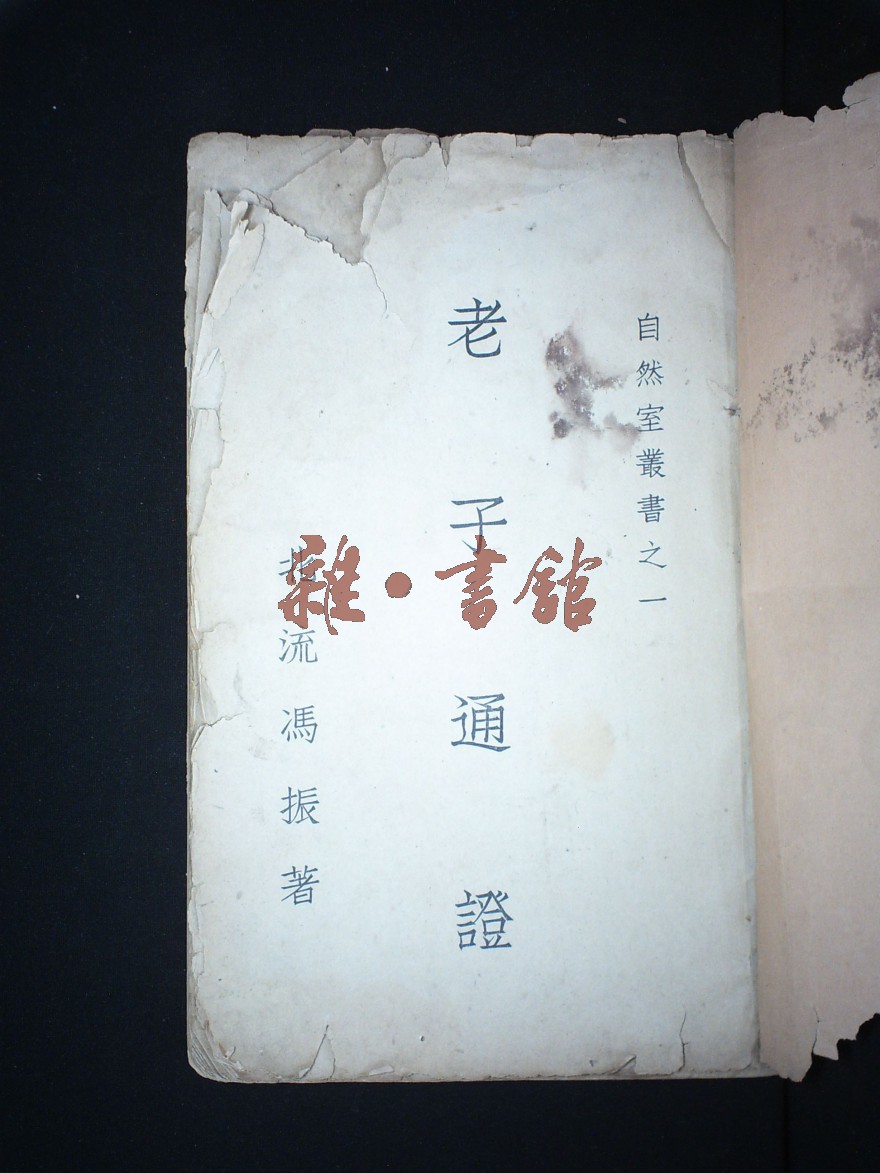 自然室叢書之一
老子通證
北流馮振著
雜·書館